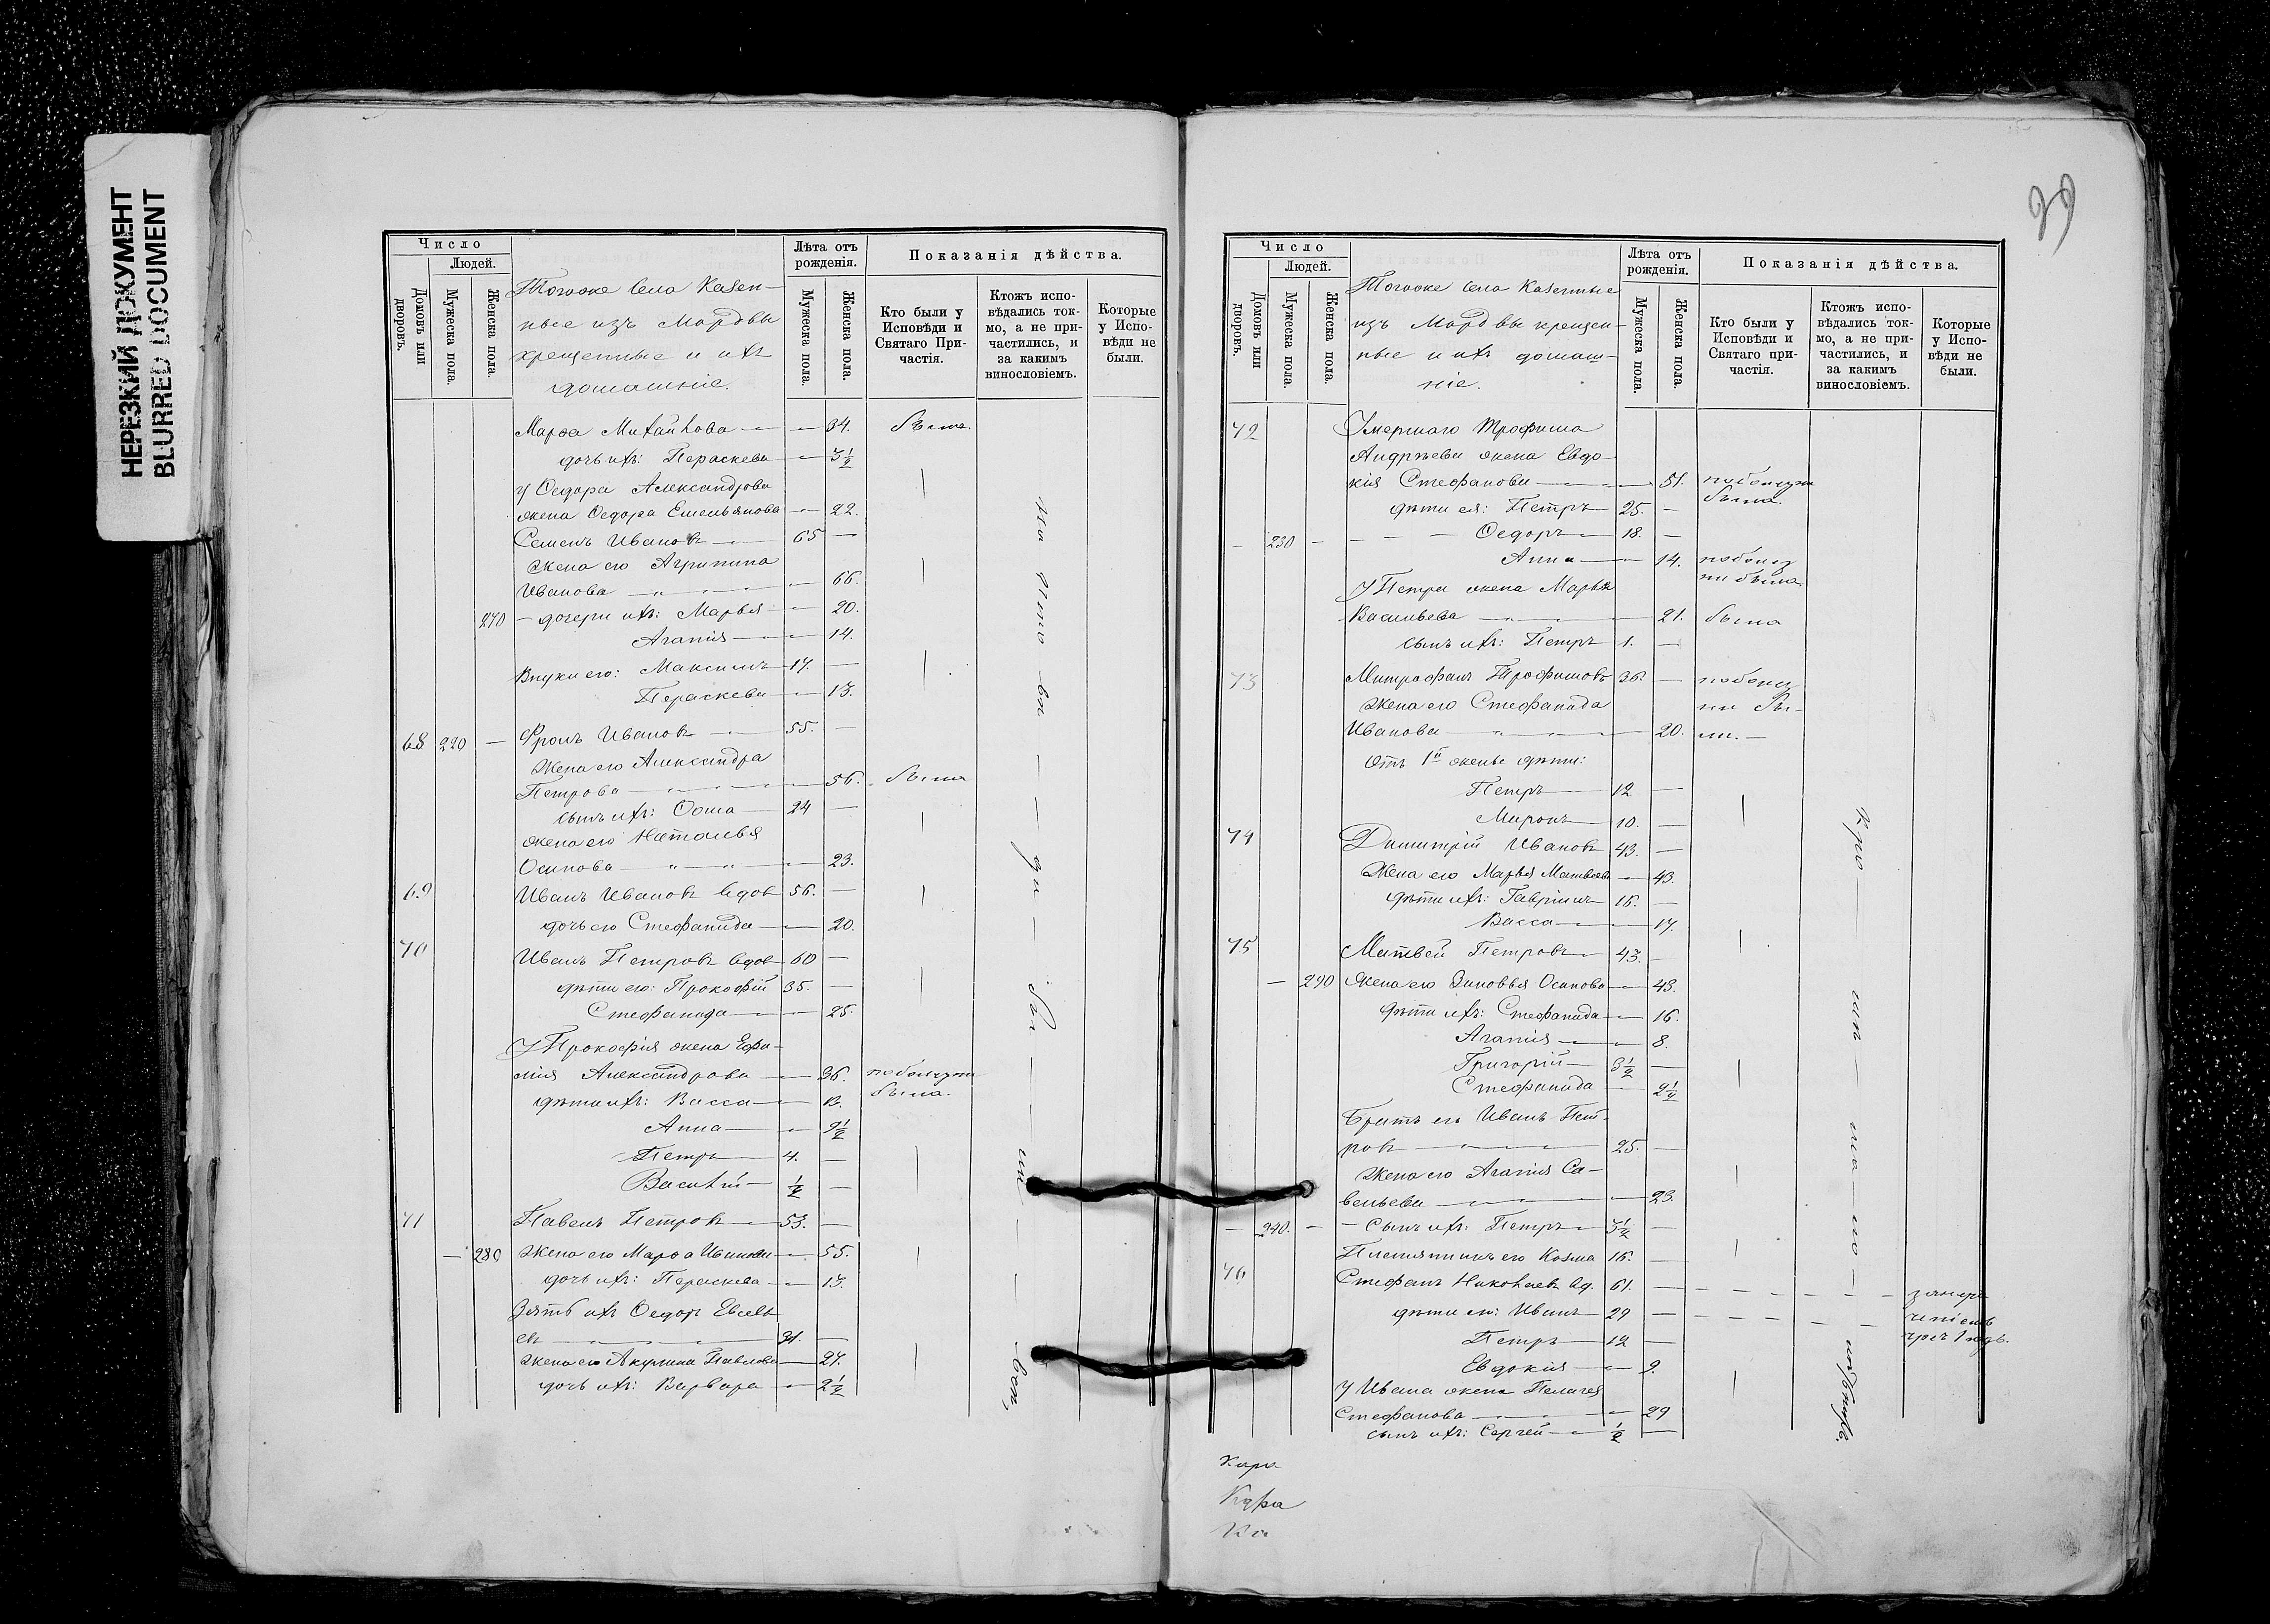 НЕРЕЗКИЙ ДОКУМЕНТ
BLURRED DOCUMENT
Число
Людей.
Домовъ или дворовъ.
Мужеска пола.
Женска пола.
Тогоже села Казен-
ные изъ Мордвы
крещенные и ихъ
домашніе.
Лѣта отъ рожденія.
Мужеска пола.
Женска пола.
Показанія дѣйства.
Кто были у Исповѣди и Святаго Причастія.
Ктожъ исповѣдались токмо, а не причастились, и за какимъ винословіемъ.
Которые у Исповѣди не были.
Марѳа Михайлова — 34. была.
дочь ихъ: Параскева — 3½
у Ѳедора Александрова
жена Ѳедора Емельянова — 22.
Семенъ Ивановъ — 65 —
Жена его Агрипина
Иванова — 66.
270 — дочери ихъ: Марья — 20.
Агапія — 14.
Внуки его: Максимъ — 17. —
Параскева — 13.
68 220 — Фролъ Ивановъ — 55. —
Жена его Александра
Петрова — 56. была
сынъ ихъ: Ѳома — 24 —
жена его Наталья
Осипова — 23.
69 Иванъ Ивановъ вдов 56. —
дочь его Стефанида — 20.
70 Иванъ Петровъ вдов 60 —
дѣти его: Прокофій 35. —
Стефанида — 25.
У Прокофія жена Ефи-
мія Александрова — 36.
была.
дѣти ихъ: Васса — 13.
Анна — 9½
Петръ — 4. —
Василій — ½ —
71 Павелъ Петровъ — 53. —
— 280 Жена его Марѳа Иванова — 55.
дочь ихъ: Параскева — 13.
Зять ихъ Ѳедоръ Евсевь
евъ — 31. —
Жена его Акулина Павлова — 27.
дочь ихъ: Варвара — 2½
29
Число
Людей.
Домовъ или дворовъ.
Мужеска пола.
Женска пола.
Тогоже села Казенные
изъ Мордвы крещен-
ные и ихъ домаш-
ніе.
Лѣта отъ рожденія.
Мужеска пола.
Женска пола.
Показанія дѣйства.
Кто были у Исповѣди и Святаго причастія.
Ктожъ исповѣдались токмо, а не причастились, и за какимъ винословіемъ.
Которые у Исповѣди не были.
72 Умершаго Трофима
Андрѣева жена Евдо-
кія Стефанова — 51.
была.
дѣти ея: Петръ — 25. —
— 230 — Ѳедоръ — 18. —
Анна — 14.
У Петра жена Марья
Васильева — 21. была
сынъ ихъ: Петръ 1. —
73 Митрофанъ Трофимовъ 36. —
Жена его Стефанида
Иванова — 20.
Отъ 1й жены дѣти:
Петръ — 12 —
Миронъ — 10. —
74 Димитрій Ивановъ 43. —
Жена его Марья Матвеева — 43.
дѣти ихъ: Гавріилъ — 16. —
Васса — 17.
75 Матвей Петровъ — 43. —
— 290 Жена его Зиновья Осипова — 43.
дѣти ихъ: Стефанида — 16.
Агапія — 8.
Григорій — 3½ —
Стефанида — 2½
Братъ его Иванъ Пет-
ровъ — 25. —
Жена его Агапія Са-
вельева — 23.
— 240. — Сынъ ихъ: Петръ — 3½ —
Племянникъ его Козма 16. —
76 Стефанъ Николаевъ вд. 61. —
дѣти его: Иванъ — 29 —
Петръ — 12 —
Евдокія — 9.
У Ивана жена Пелагея
Стефанова — 29
сынъ ихъ: Сергей — ½ —